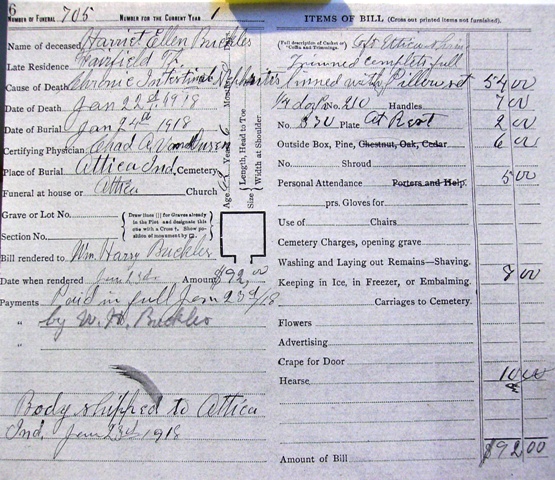 6
NUMBER OF FUNERAL 705 NUMBER FOR THE CURRENT YEAR 1
Name of deceased Harriet Ellen Buckles
Late Residence Fairfield
Cause of Death Chronic Intestinal Nephritis
Date of Death Jan 22d 1918
Date of Burial Jan 24th 1918
Certifying Physician Chad A. VanDusen
Place of Burial Attica Ind, Cemetery
Funeral at house or Attica Church
Grave or Lot No.
Section No.
Draw lines ||| for Graves already in the Plot and designate this one with a Cross †. Show position of monument by
Bill rendered to Wm. Harry Buckles
Date when rendered Jan 23d Amount $92.00
Payments Paid in full Jan 23d/18
" by W. H. Buckles
"
Body shipped to Attica
Ind. Jan 23rd 1918
Age Years Months
Size { Length, Head to Toe
Width at Shoulder
ITEMS OF BILL (Cross out printed items not furnished).
(Full description of Casket or Coffin and Trimmings.)
Trimmed complete full
linned with Pillow set 54 00
No. 210 Handles 7 00
No. 830 Plate At Rest 2 00
Outside Box, Pine, Chestnut, Oak, Cedar 6 00
No. Shroud
Personal Attendance Porters and Help. 5 00
prs. Gloves for
Use of Chairs
Cemetery Charges, opening grave
Washing and Laying out Remains—Shaving.
Keeping in Ice, in Freezer, or Embalming. 8 00
Carriages to Cemetery.
Flowers
Advertising
Crape for Door
Hearse 10 00
Amount of Bill $92 00